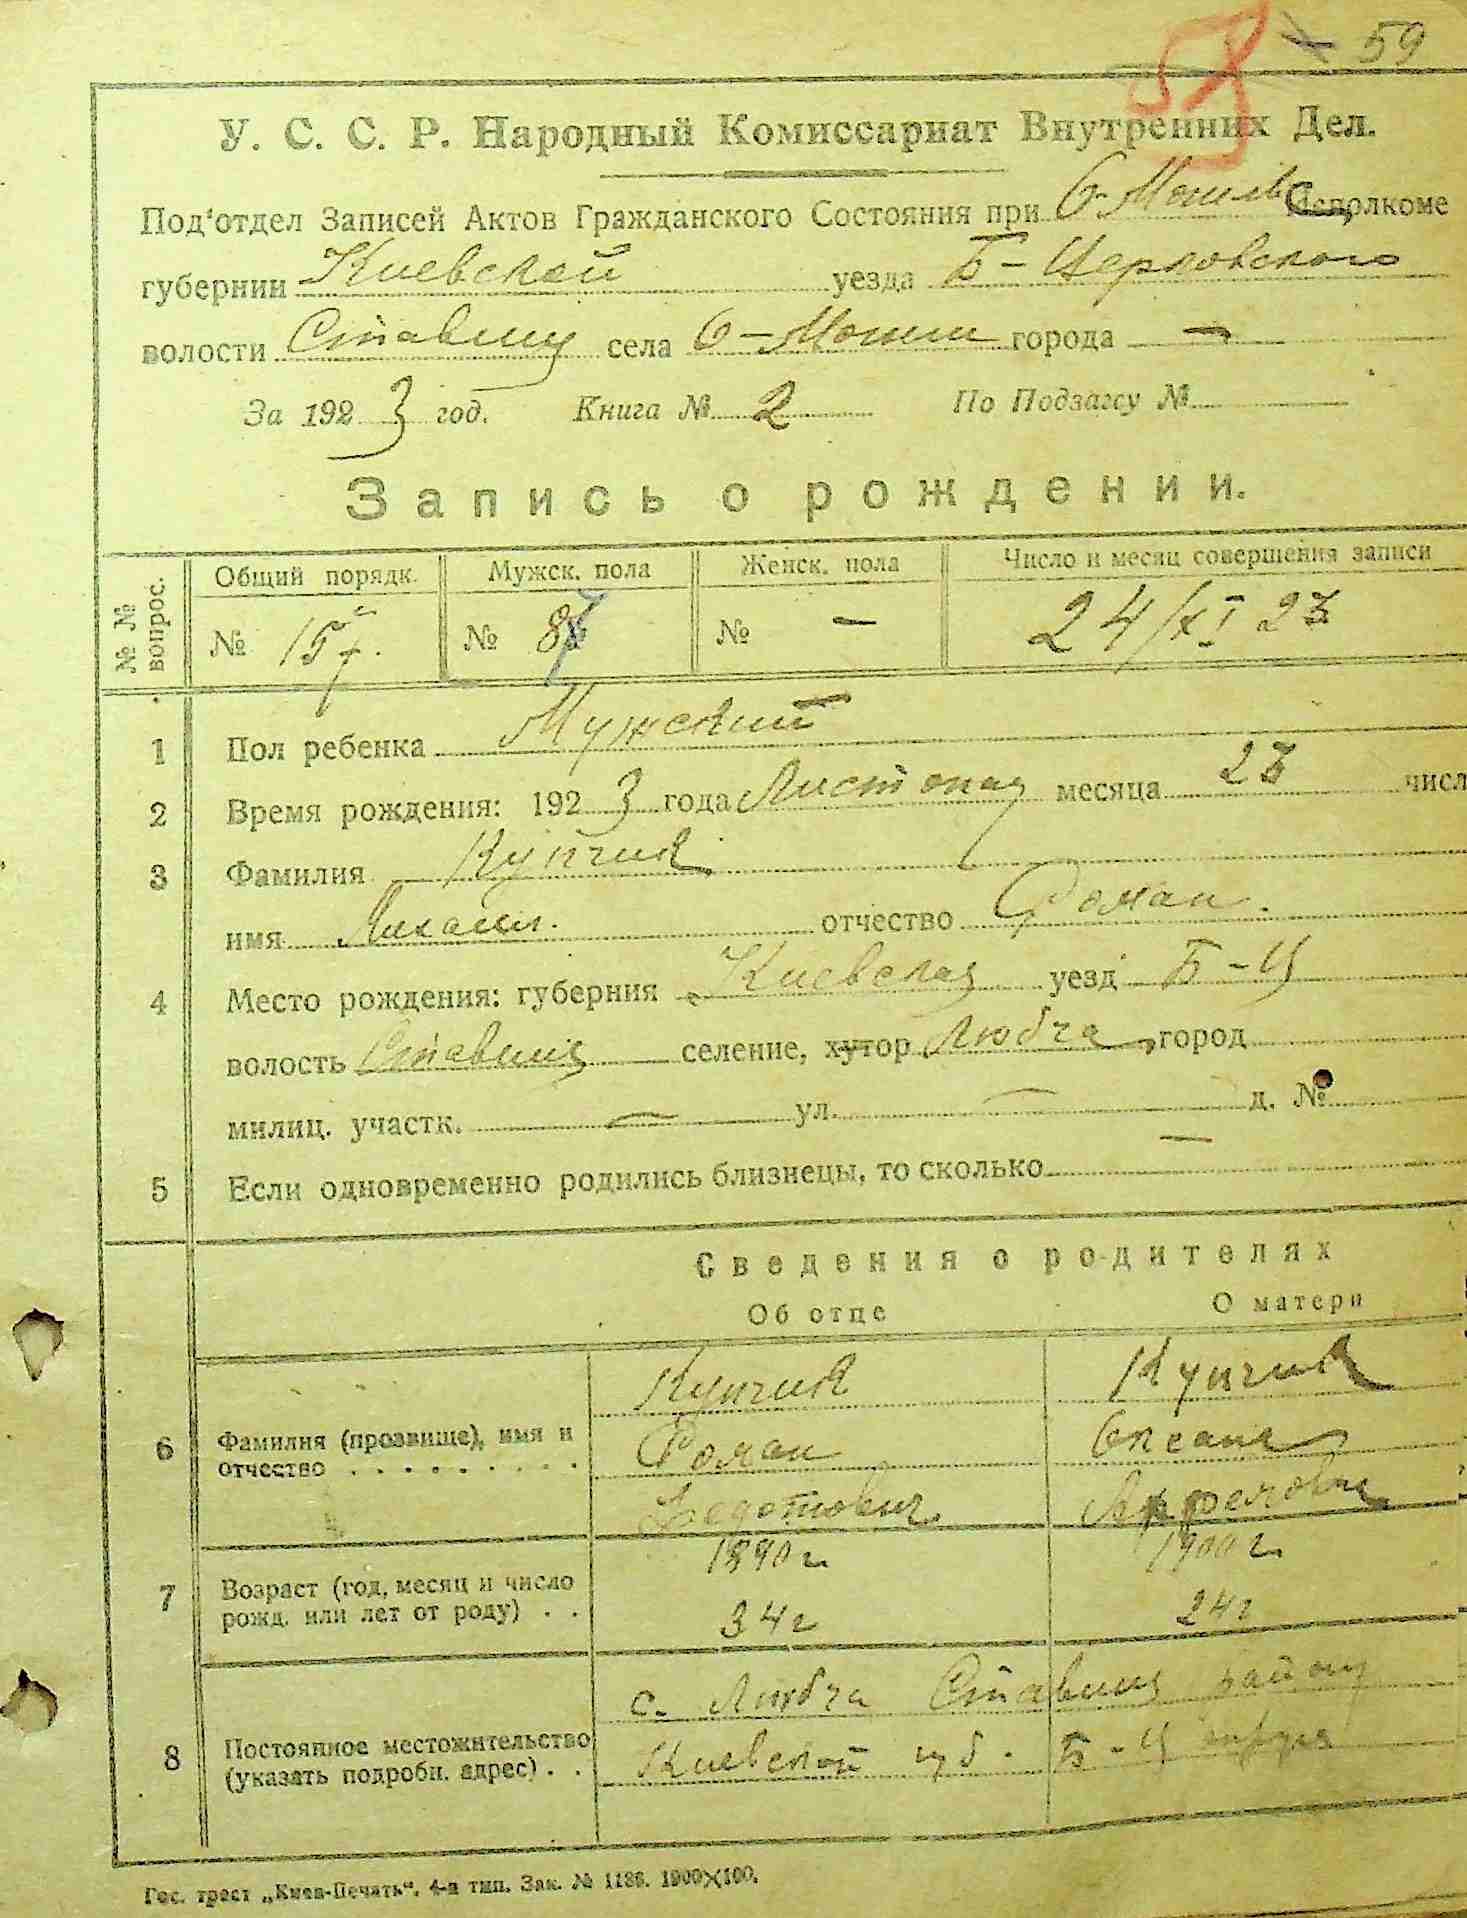 59
У. С. С. Р. Народный Комиссариат Внутренних Дел.
Под'отдел Записей Актов Гражданского Состояния при 6-Могилв Исполкоме
губернии Киевской уезда Б-Церковского
волости Ставищ села 6-Могили города —
За 1923 год. Книга № 2 По Подзагсу №
Запись о рождении.
№№ вопрос. Общий порядк. Мужск. пола Женск. пола Число и месяц совершения записи
№ 157. № 8 № — 24/XI 23
1 Пол ребенка Мужский
2 Время рождения: 1923 года Листопад месяца 23 числ
3 Фамилия Купчик
имя Михаил. отчество Роман.
4 Место рождения: губерния Киевская уезд Б-Ц
волость Ставищ селение, хутор Любча, город
милиц. участк. — ул. — д. №
5 Если одновременно родились близнецы, то сколько —
Сведения о родителях
Об отце О матери
Купчик Купчик
6 Фамилия (прозвище), имя и Роман Оксана
отчество . . . . . . . . . Федотович
1890 г. 1900 г.
7 Возраст (год, месяц и число
рожд. или лет от роду) . . 34 г 24 г
с. Любча Ставищ району
8 Постоянное местожительство Киевской губ. Б-Ц округа
(указать подробн. адрес) . .
Гос. трест „Киев-Печать“. 4-я тип. Зак. № 1186. 1000×100.